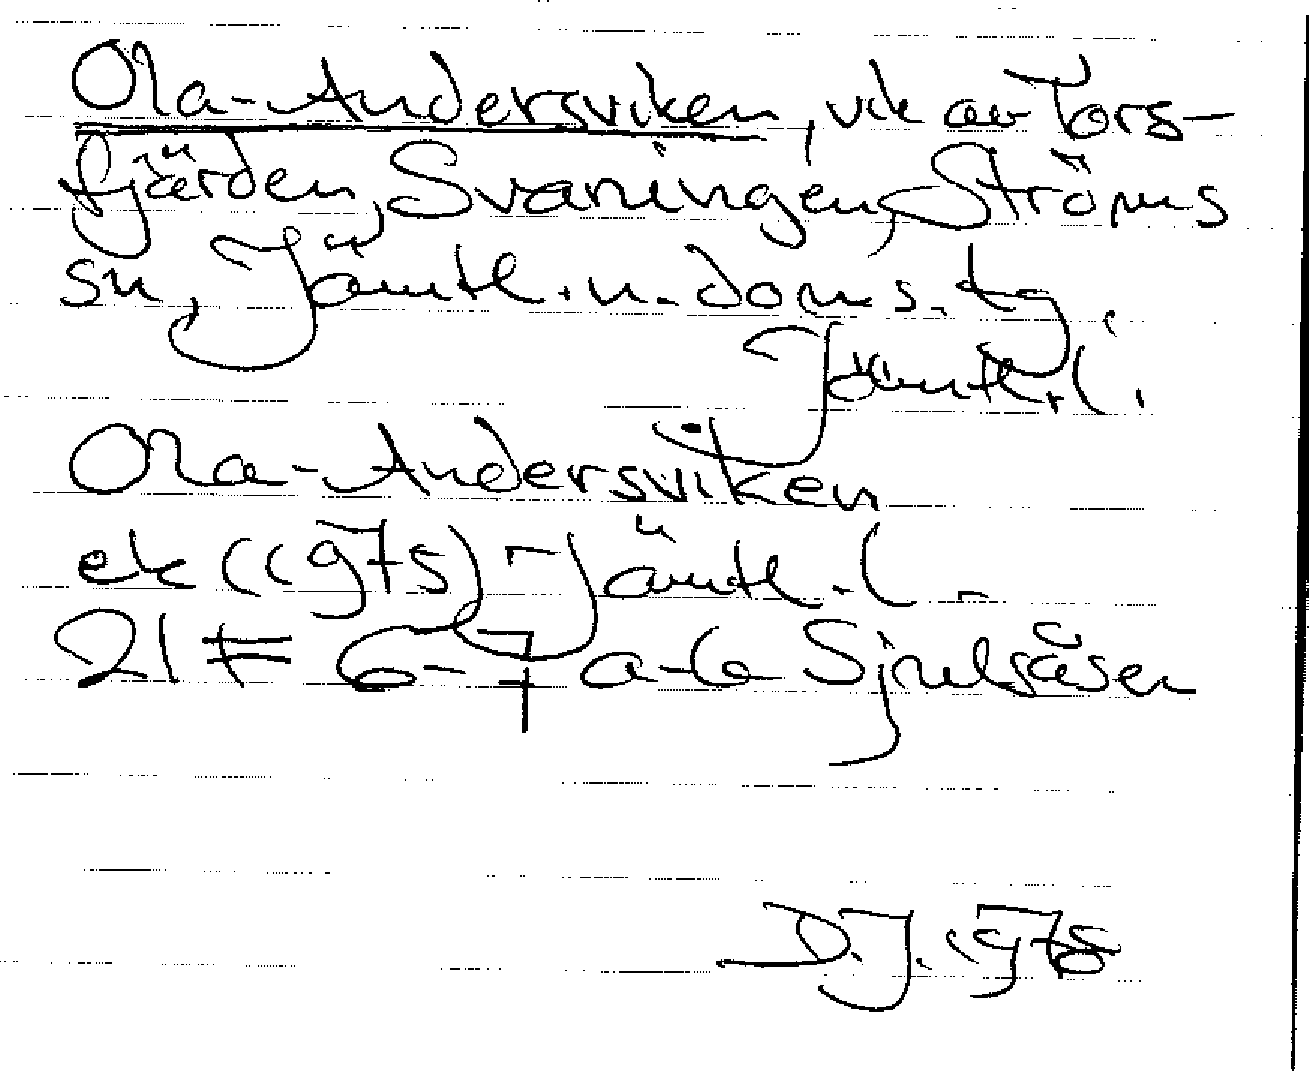 Ola-Andersviken, vik av Tors-
fjärden, Svaningen, Ströms
sn, Jämtl. n. doms. tg.
Jämtl. l.
Ola-Andersviken
ek (1975) Jämtl. l.
21 F 6-7 a-b Sjulsåsen
D.J. 1978